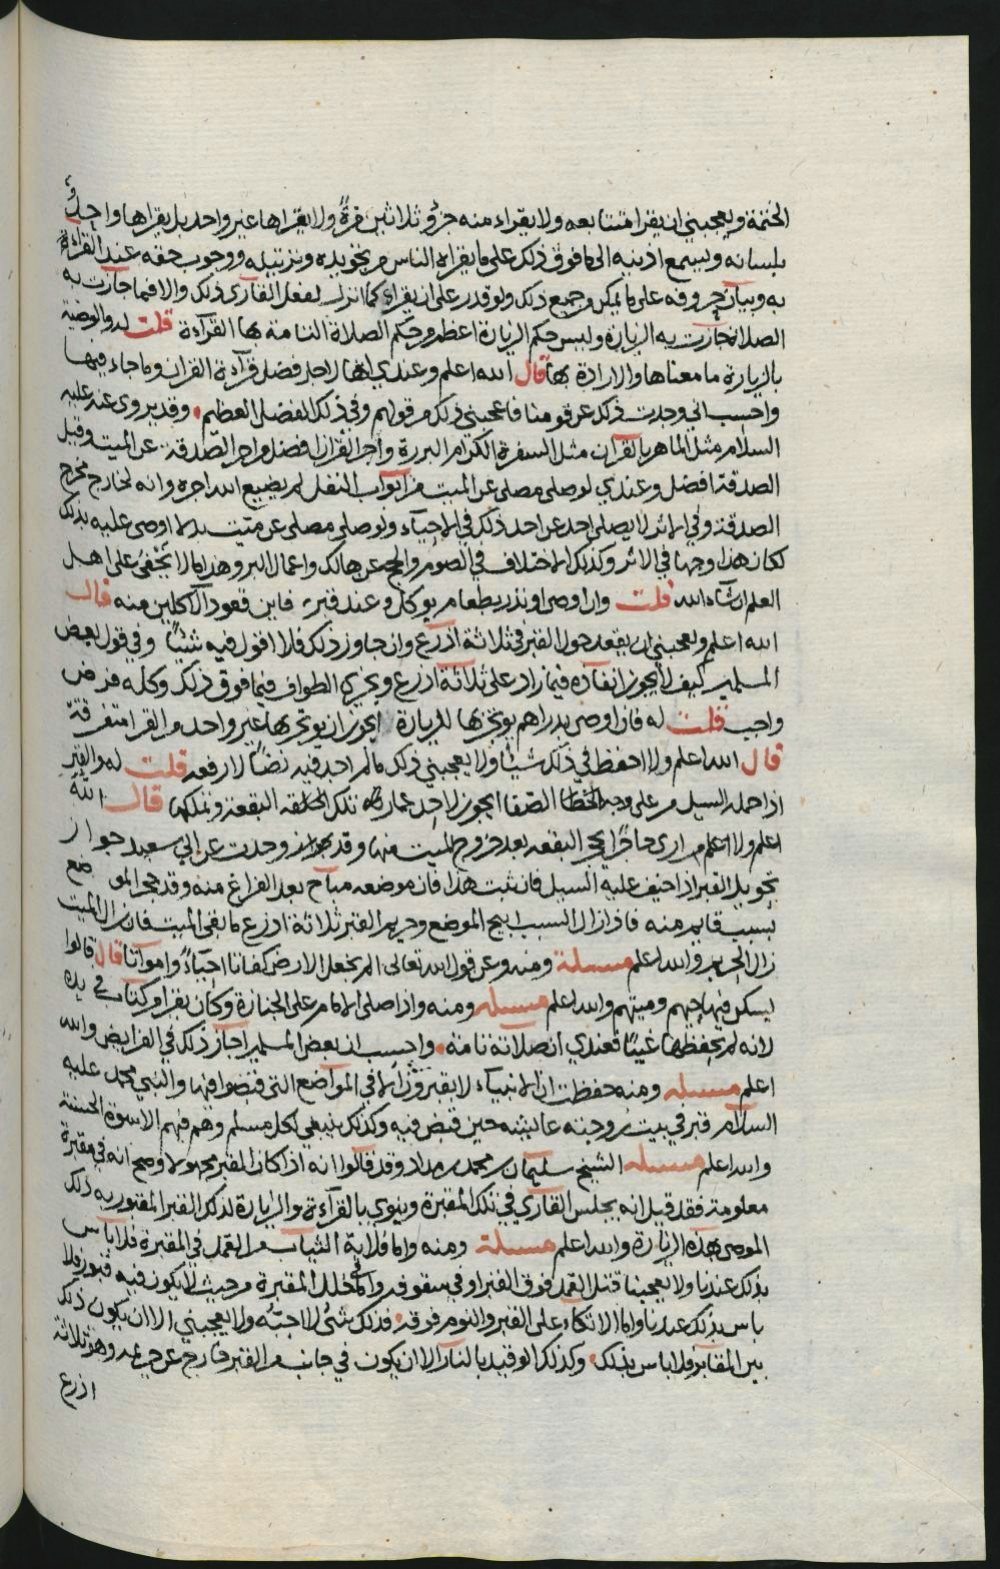 الختمة ويعجبني ان يقرا متتابعه ولا يقراء منه جزؤ ثلاثين مرةً ولا يقراها غير واحد بل يقراها واحدٌ
بلسانه ويسمع اذنيه الى ما فوق ذلك على ما يقراه الناس من تجويده وترتيله ووجوب حقه عند القراءة
به وبيان حروفه على ما يمكن وجميع ذلك ولو قدر على ان يقراء كما انزل لفعل القاري ذلك والا فما جازت به
الصلاة جازت به الزيارة وليس حكم الزيارة اعظم من حكم الصلاة التامة بها القرآءة قلت له والوصية
بالزيارة ما معناها والارادة بها قال الله اعلم وعندي انها لاجل فضل قرآءة القران وما جاء فيها
واحسب اني وجدت ذلك عن قومنا فاعجبني ذلك من قولهم وفي ذلك الفضل العظيم وقد يروى عنه عليه
السلام مثل الماهر بالقرآن مثل السفرة الكرام البررة وأجر القران افضل من اجر الصدقة عن الميت وقيل
الصدقة افضل وعندي لو صلى مصلي عن الميت من ابواب النفل لم يضيع الله اجره وانه لخارج مخرج
الصدقة وفي الاثر لا يصلي احد عن احد ذلك في الاحياء ولو صلى مصلي عن ميت بدلا اوصى عليه بذلك
لكان هذا وجها في الاثر وكذلك الاختلاف في الصوم والحج عن هالك واعمال البر وهذا ما لا يخفى على اهل
العلم ان شاء الله قلت وان اوصى او نذر بطعام يوكل وعند قبر فاين قعود الآكلين منه قال
الله اعلم ويعجبني ان يقعد حول القبر في ثلاثة اذرع وان جاوز ذلك فلا اقول فيه شيئا وفي قول بعض
المسلمين كيف لا يجوز انفاذه فيما زاد على ثلاثة اذرع ويجزي الطواف فيما فوق ذلك وكله فرض
واجب قلت له فان اوصى بدراهم يوتجر بها للزيارة ايجوز ان يوتجر بها غير واحد والقرا متفرقة
قال الله اعلم ولا احفظ في ذلك شيئا ولا يعجبني ذلك ما لم اجد فيه نصًا لارفعه قلت له والقبر
اذا حمله السيل من على وجه الصفا ايجوز لاحد عمارة تلك البقعة وتملكها قال الله
اعلم ولا اعلم من ارى جائزا حجر البقعه بعد خروج الميت منها وقد وجدت عن ابي سعيد جواز
تحويل القبر اذا خيف عليه السيل فان ثبت هذا فان موضعه مباح بعد الفراغ منه وقد حجر الموضع
بسبب قايم منه فاذا زال السبب ابيح الموضع وحريم القبر ثلاثة اذرع ما بقي الميت فان زال الميت
زال الحريم والله اعلم مسئلة ومنه وعن قول الله تعالى الم نجعل الارض كفاتا احياءً وامواتا قال قالوا
يسكن فيها حيهم وميتهم والله اعلم مسئلة ومنه واذا صلى الامام على الجنازة وكان يقرا من كتاب في يده
لانه لم يحفظها غيبًا فعندي ان صلاته تامة واحسب ان بعض المسلمين اجاز ذلك في الفرايض والله
اعلم مسئلة ومنه حفظت ان الانبياء لا يقبرون الا في المواضع التي قبضوا فيها والنبي محمد عليه
السلام قبر في بيت زوجته عائشه حين قبض فيه وكذلك ينبغي لكل مسلم وهم فيهم الاسوة الحسنة
والله اعلم مسئلة الشيخ سليمان بن محمد بن مداد وقد قالوا انه اذا كان القبر مجهولا وصح انه في مقبرة
معلومة فقد قيل انه يجلس القاري في تلك المقبرة وينوي بالقرآءة والزيارة لذلك القبر المقبور به ذلك
الموصي بهذه الزيارة والله اعلم مسئلة ومنه واما فلاية الثياب من القمل في المقبرة فلا باس
بذلك عندنا ولا يعجبنا قتل القمل فوق القبر او في سقوفه واما في خلل المقبرة من حيث لا يكون فيه قبور فلا
باس بذلك عندنا واما الاتكاء على القبر والنوم فوقه فذلك شئ لا احبّه ولا يعجبني الا ان يكون ذلك
بين المقابر فلا باس بذلك وكذلك الوقيد بالنار الا ان يكون في جانب من القبر خارج عن حريمه وهو ثلاثة
اذرع